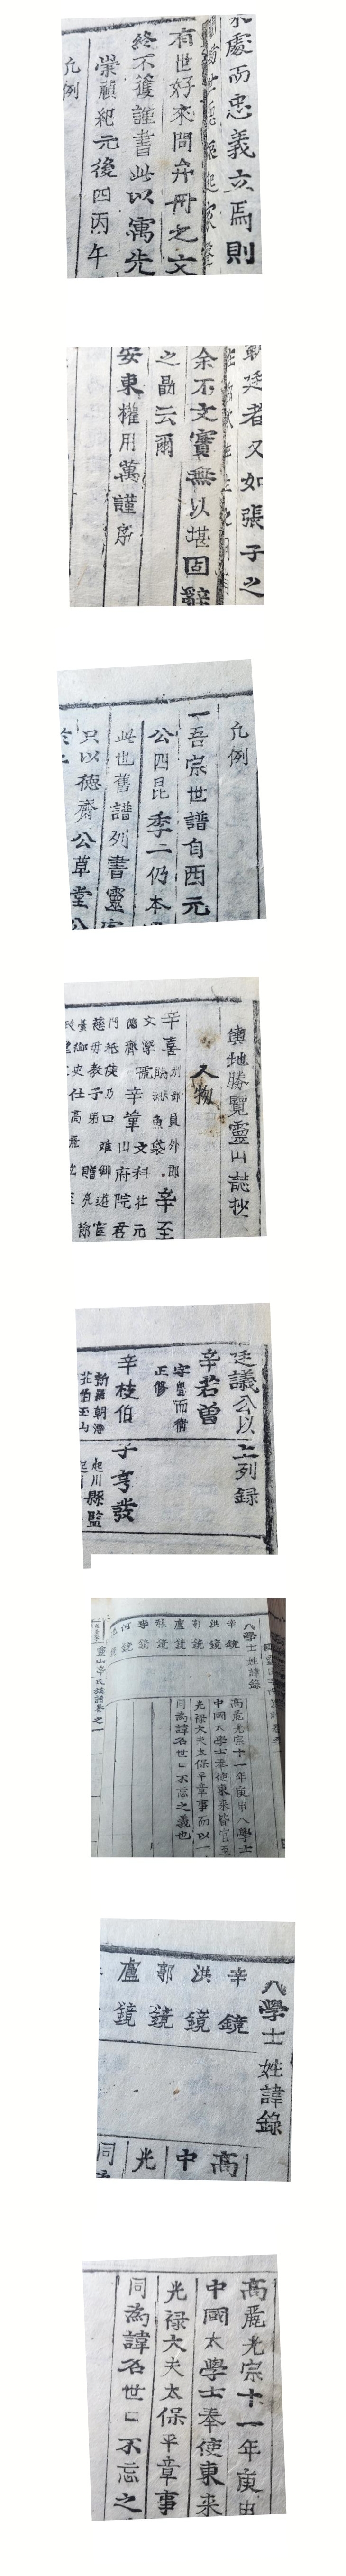 處而忠義立焉則
有世好來問弁冊之文
終不獲謹書此以寓先
崇禎紀元後四丙午
凡例
者又如張子之
余不文實無以堪固辭
之勗云爾
安東權用萬謹序
凡例
一吾宗世譜自酉元
公四昆季二仍本
此也舊譜列書靈
只以德齋公草堂公
輿地勝覽靈山誌抄
人物
辛喜
刑部員外郎
辛至
文學
德齋
辛蕆
文科壯元
山府院君
廷議公以上列錄
辛若曾
正修
辛枝伯
子亨發
縣監
八學士姓諱錄
辛鏡
洪鏡
郭鏡
盧鏡
高麗光宗十一年庚申八學士
中國太學士奉使東來皆官至
光祿大夫太保平章事而以一
同為諱名世世不忘之義也
靈山辛氏族譜卷之一
八學士姓諱錄
辛鏡
洪鏡
郭鏡
盧鏡
高
中
光
同
高麗光宗十一年庚申
中國太學士奉使東來
光祿大夫太保平章事
同為諱名世世不忘之